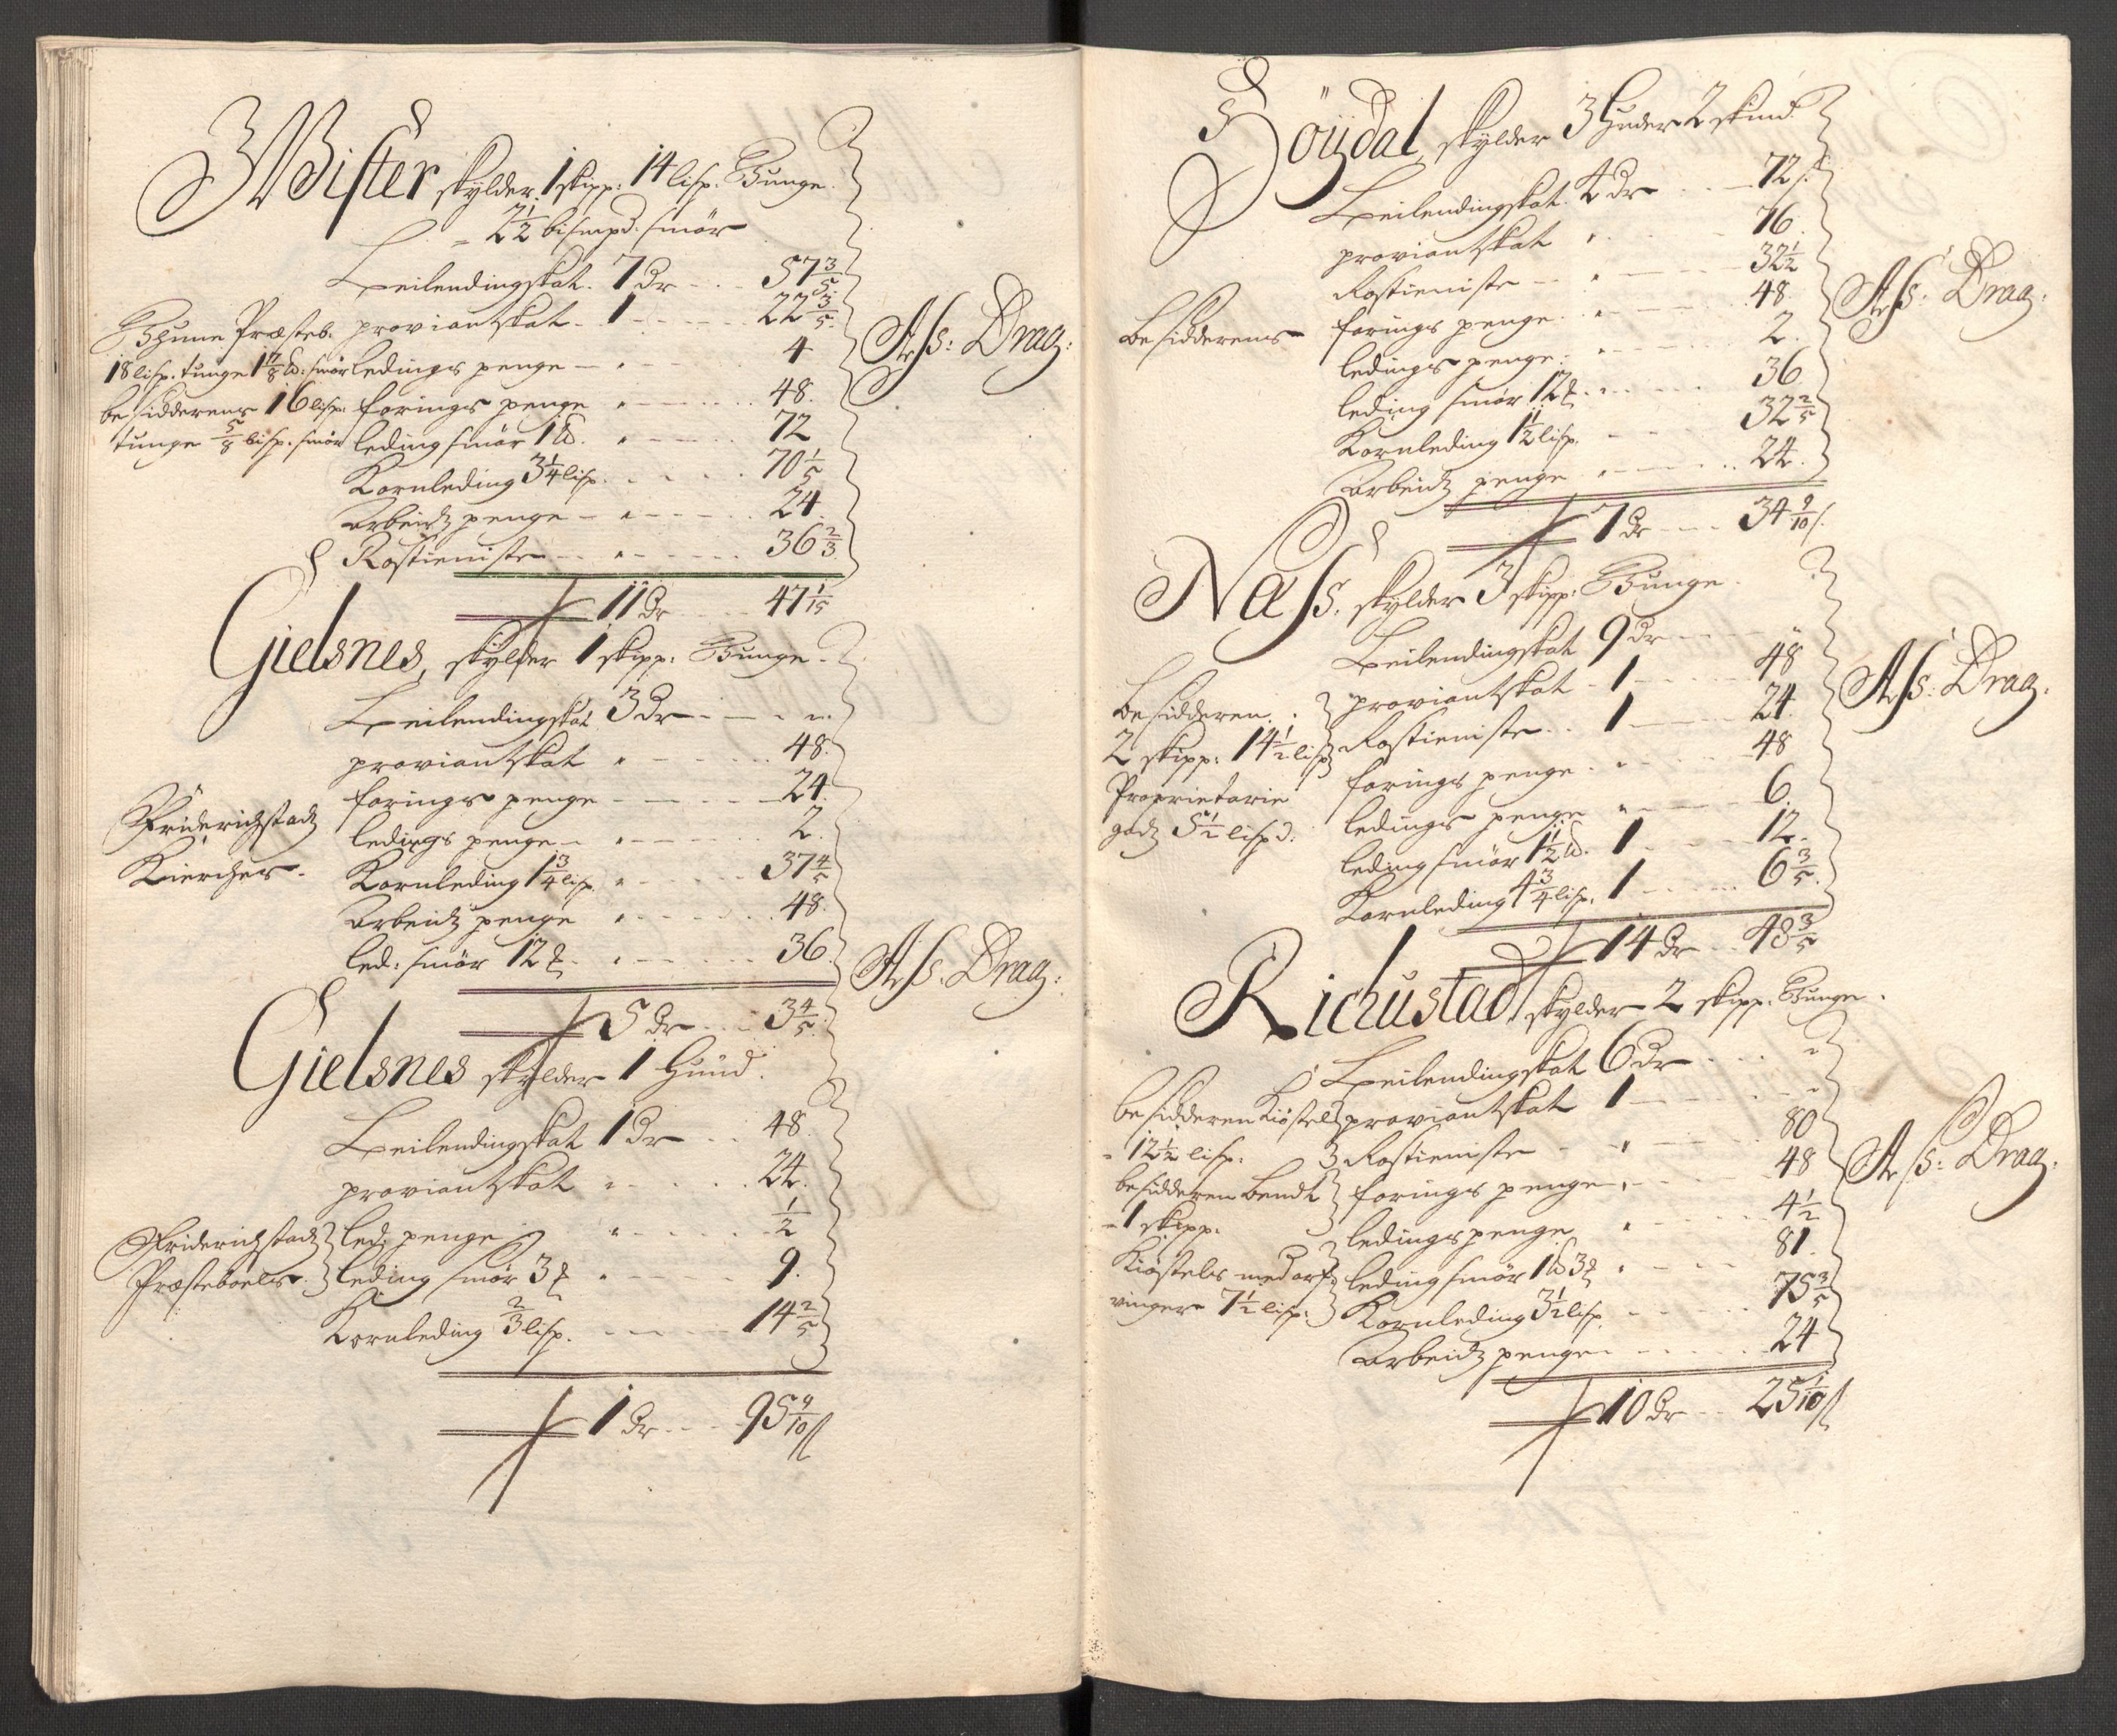 Wister skylder 1 skipp: 14 lisp. Tunge
- 2 1/2 bismpd: smör
Leilendingskat. 7 Dr - - - 57 3/5
Thune Præsteb. proviantskat. 1 - - - 22 3/5
18 lisp. tunge 1 7/8 lb: smör ledings penge - " - - - 4
besidderens 16 lisp: forings penge " - - - 48.
tunge 5/8 bisp. smör leding smör 1 lb. " - - - 72
Kornleding 3 1/4 lisp. - - - 70 1/5
Arbeidtz penge - " - - - 24.
Rostieniste - - " - - - 36 2/3
11 Dr - - 47 1/15
Ass: Drag:
Gielsnes, skylder 1 skipp: Tunge.
Leilendingskat 3 Dr - - - "
proviantskat " - - - 48.
forings penge - - - 24.
Friderichstadz ledings penge - " - - - 2.
Kierches. Kornleding 1 3/4 lisp. " - - - 37 4/5
Arbeidtz penge " - - - 48.
led: smör 12 - " - - - 36
5 Dr - - - 3 4/5
Ass: Drag:
Gielsnes skylder 1 Huud.
Leilendingskat 1 Dr - - 48.
proviantskat " - - - 24.
Friderichstadz led: penge " - - - 1/2
Præsteboels. leding smör 3 " - - - 9.
Kornleding 2/3 lisp. - - - 14 2/5
1 Dr - - - 95 9/10 s
Höÿdal, skylder 3 Huder 2 skind.
Leilendingskat. 4 Dr - - - 72 s.
proviantskat " - - - 76.
Rostieniste - - " - - - 32 1/2
besidderens forings penge. " - - - 48.
ledings penge. " - - - 2.
leding smör 12 - - - 36
Kornleding 1 1/2 lisp. - - - 32 2/5
Arbeidtz penge " - - - 24.
7 Dr - - - 34 9/10 s.
Ass: Drag:
Næss. skylder 3 skipp: Tunge.
Leilendingskat 9 Dr - - - "
besidderen. proviantskat - 1 - - - 48
2 skipp: 14 1/2 lisp Rostieniste - - 1 - - - 24.
Proprietarie forings penge. " - - - 48
godz 5 1/2 lispd: ledings penge " - - - 6.
leding smör 1 1/2 lb. 1 - - - 12.
Kornleding 4 3/4 lisp. 1 - - - 6 3/5.
14 Dr - - 48 3/5
Ass: Drag.
Richustad, skylder 2 skipp. Tunge.
Leilendingskat 6 Dr - - - "
besidderen Kiöstel proviantskat 1 - - - "
- 12 1/2 lisp. Rostieniste - " - - - 80
besidderen Bendt forings penge " - - - 48
- 1 skipp. ledings penge " - - - 4 1/2
Kiöstels medarf- leding smör 1 lb 3 " - - - 81.
vinger 7 1/2 lisp: Kornleding 3 1/2 lisp. - - - 75 3/5
Arbeidtz penge - - - 24
10 Dr - - 25 1/10 s
Ass: Drag.